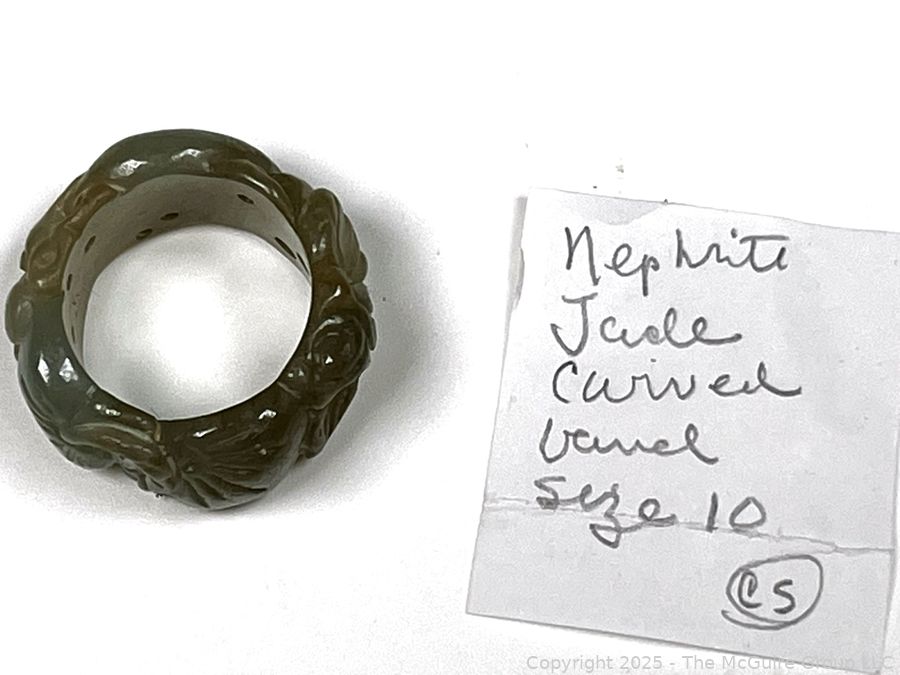 Nephrite
Jade
Carved
band
Size 10
CS
Copyright 2025 - The McGuire Group LLC